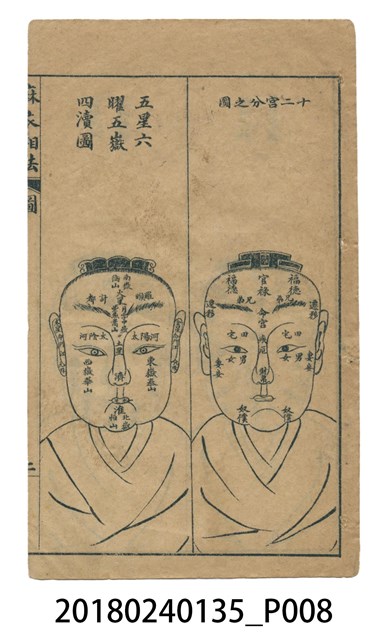 十二宮分之圖
官祿
福德
福德
遷移
遷移
兄弟
兄弟
命宮
田宅
男女
妻妾
妻妾
疾厄
財帛
奴僕
奴僕
五星六
曜五嶽
四瀆圖
南嶽
衡山
羅睺
計都
太陽河
太陰河
土星
濟
東嶽泰山
西嶽華山
淮
北嶽
恒山
麻衣相法
圖
二
20180240135_P008